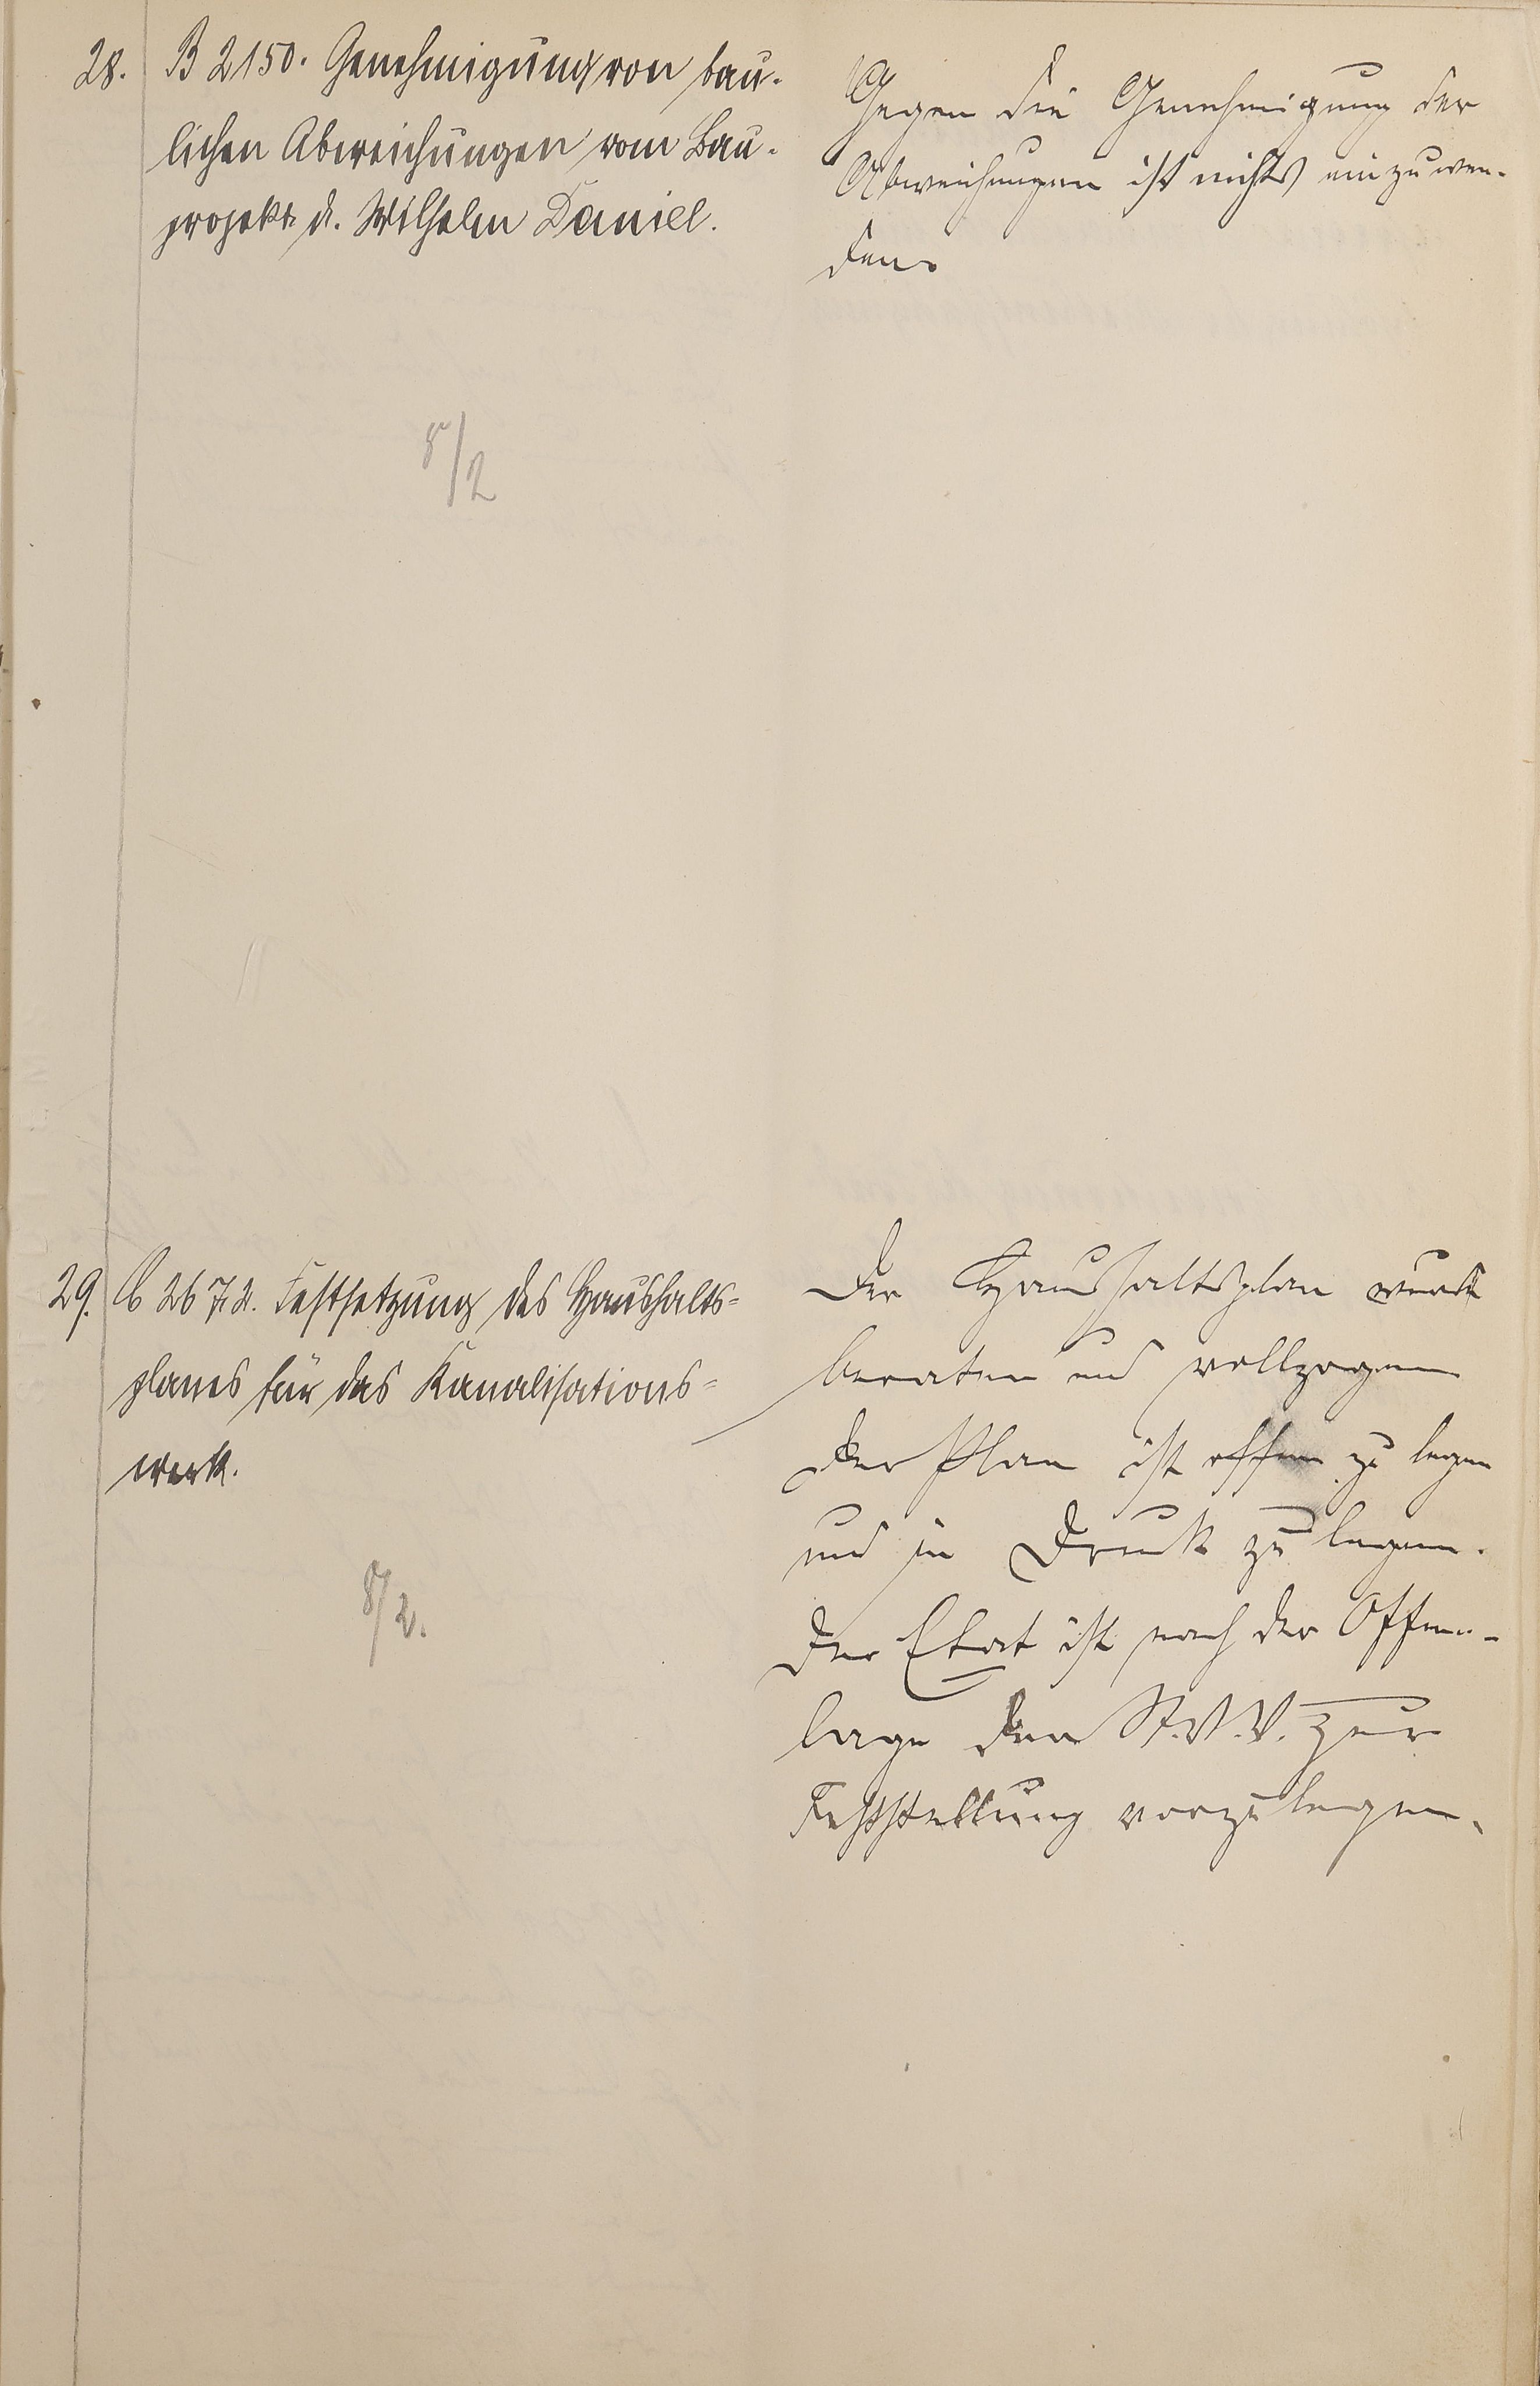 28. B 2150. Genehmigung von bau-
lichen Abweichungen vom Bau-
projekt d. Wilhelm Daniel.
8/2
Gegen die Genehmigung der
Abweichungen ist nichts einzuwen-
den.
29. C 2672. Festsetzung des Haushalts=
planes für das Kanalisations=
werk.
8/2.
Der Haushaltsplan wurde
beraten und vollzogen
Der Plan ist offen zu legen
und in Druck zu legen.
Der Etat ist nach der Offen-
lage der St.V.V. zur
Feststellung vorzulegen.